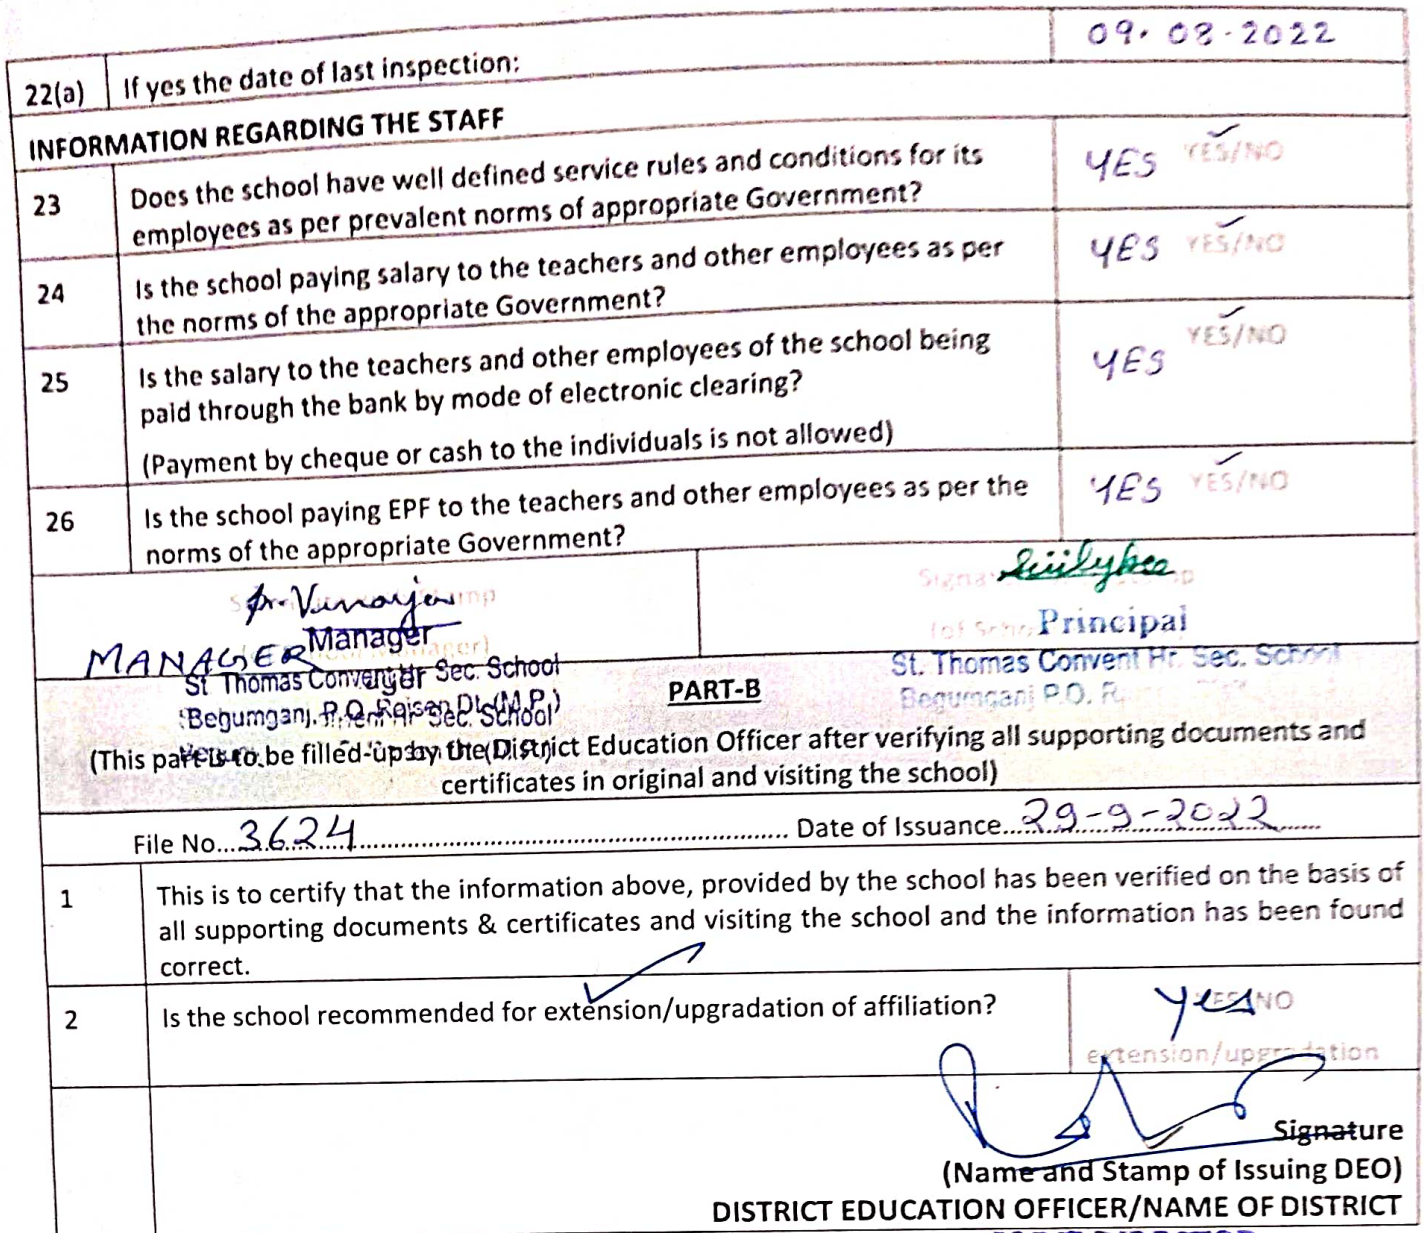 22(a) If yes the date of last inspection: 09.08.2022
INFORMATION REGARDING THE STAFF
23 Does the school have well defined service rules and conditions for its
employees as per prevalent norms of appropriate Government? YES YES/NO
24 Is the school paying salary to the teachers and other employees as per
the norms of the appropriate Government? YES YES/NO
25 Is the salary to the teachers and other employees of the school being
paid through the bank by mode of electronic clearing? YES YES/NO
(Payment by cheque or cash to the individuals is not allowed)
26 Is the school paying EPF to the teachers and other employees as per the
norms of the appropriate Government? YES YES/NO
MANAGER Manager
St Thomas Convent Hr Sec. School
Begumganj. P.O. Raisen Dt. (M.P.)
Principal
St. Thomas Convent Hr. Sec. School
Begumganj P.O.
PART-B
(This part is to be filled-up by the District Education Officer after verifying all supporting documents and
certificates in original and visiting the school)
File No...3624... Date of Issuance...29-9-2022
1 This is to certify that the information above, provided by the school has been verified on the basis of
all supporting documents & certificates and visiting the school and the information has been found
correct.
2 Is the school recommended for extension/upgradation of affiliation? yes YES/NO
extension/upgradation
Signature
(Name and Stamp of Issuing DEO)
DISTRICT EDUCATION OFFICER/NAME OF DISTRICT